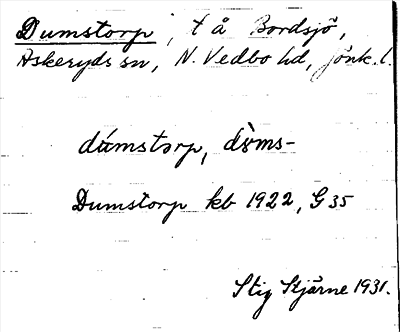 Dumstorp, t å Bordsjö,
Askeryds sn, N. Vedbo hd, Jönk. l.
dúmstorp, dòms-
Dumstorp kb 1922, G 35
Stig Stjärne 1931.